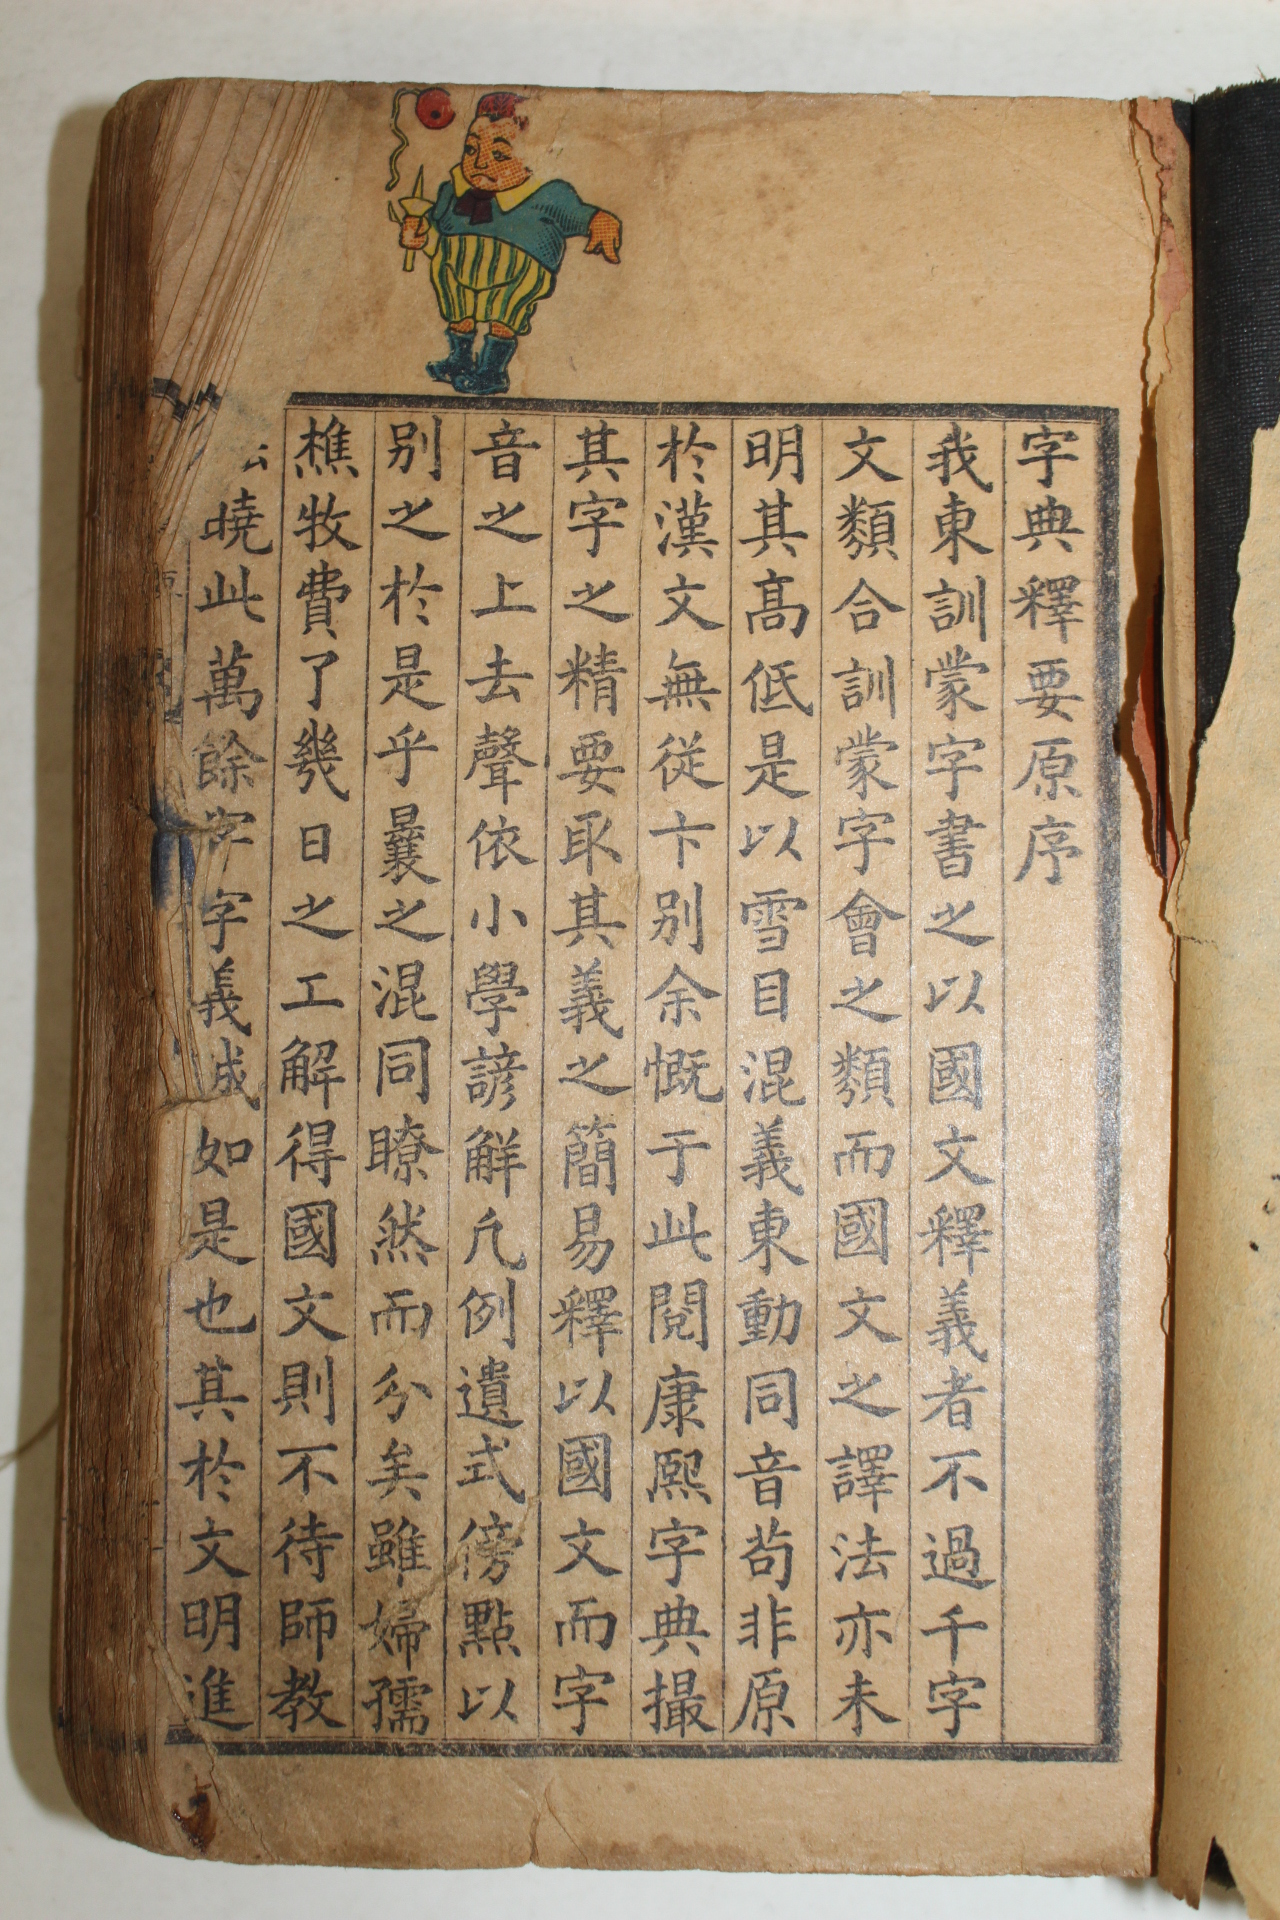 字典釋要原序
我東訓蒙字書之以國文釋義者不過千字
文類合訓蒙字會之類而國文之譯法亦未
明其高低是以雪目混義東動同音苟非原
於漢文無從卞别余慨于此閱康熙字典撮
其字之精要取其義之簡易釋以國文而字
音之上去聲依小學諺解凡例遺式傍點以
别之於是乎曩之混同瞭然而分矣雖婦孺
樵牧費了幾日之工解得國文則不待師教
曉此萬餘字字義咸如是也其於文明進